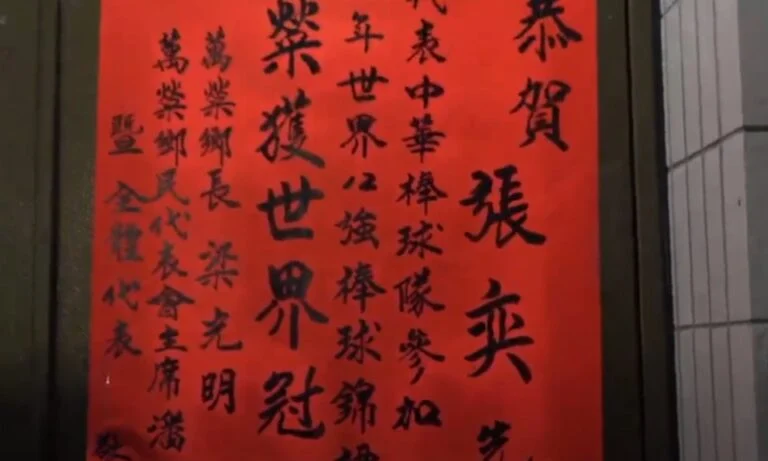 恭賀張奕先
代表中華棒球隊參加
年世界12強棒球錦標
榮獲世界冠
萬榮鄉長 梁光明
萬榮鄉民代表會主席潘
暨全體代表